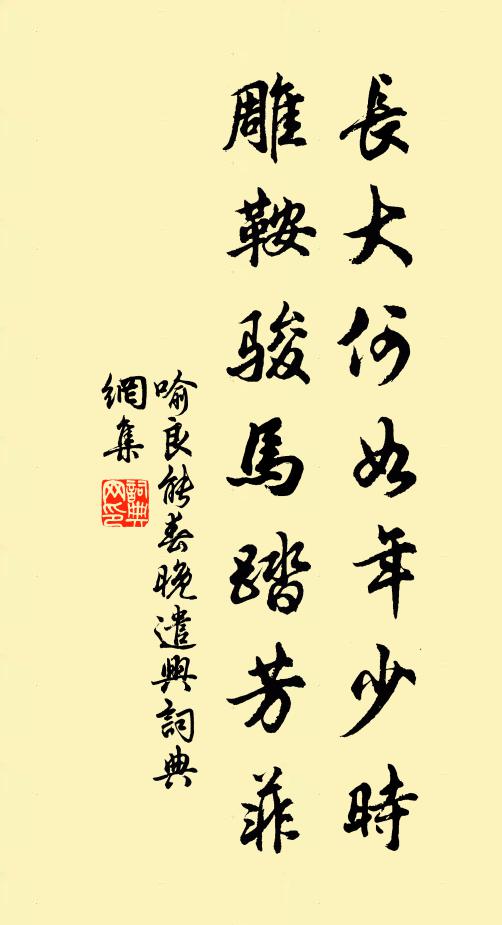 長大何如年少時
雕鞍骏馬踏芳菲
喻良能春晚遣興詞典
網集
詞典
网印